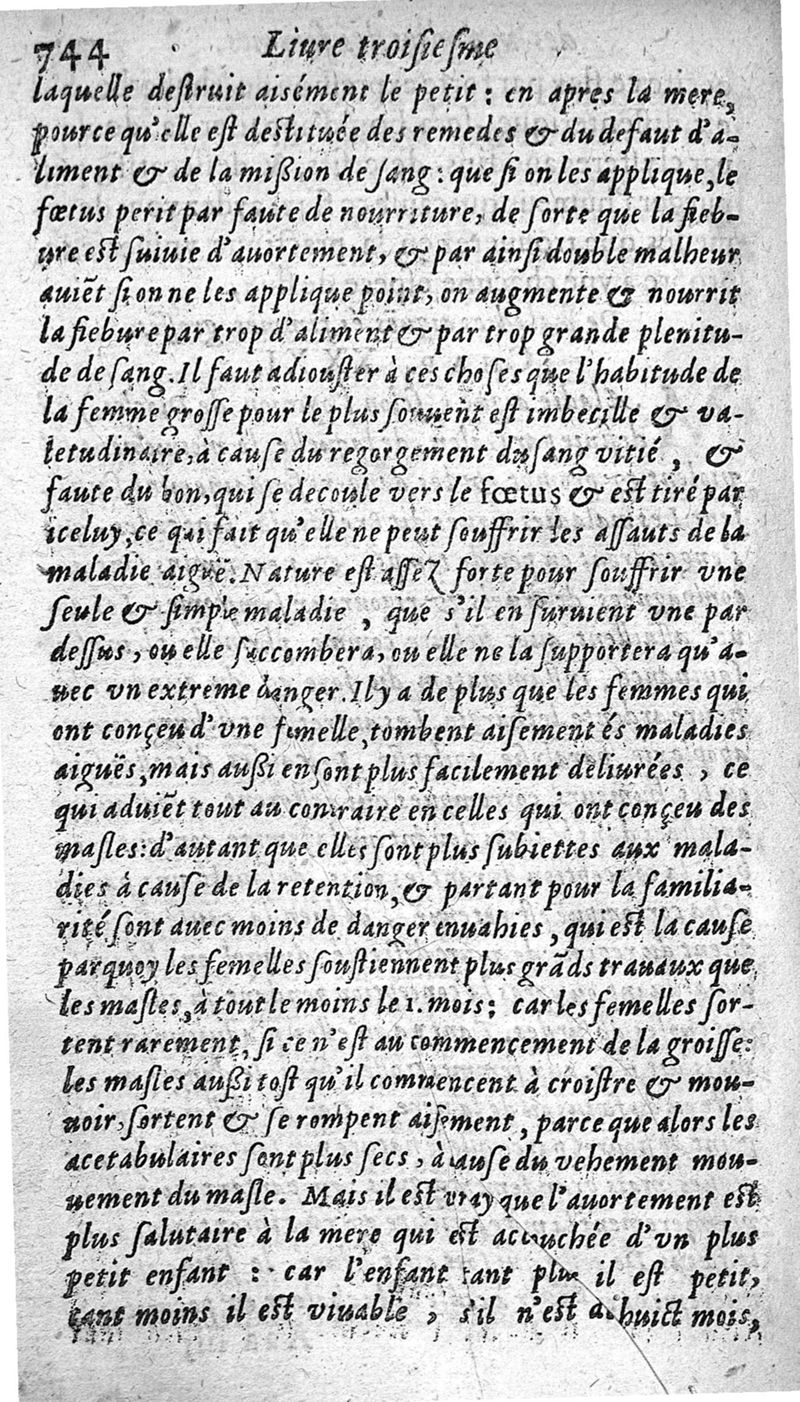 744 Liure troisiesme
laquelle destruit aisément le petit : en apres la mere,
pource qu'elle est destituée des remedes & du defaut d'a-
liment & de la mißion de sang : que si on les applique, le
fœtus perit par faute de nourriture, de sorte que la fieb-
ure est suiuie d'auortement, & par ainsi double malheur
auiẽt si on ne les applique point, on augmente & nourrit
la fiebure par trop d'aliment & par trop grande plenitu-
de de sang. Il faut adiouster à ces choses que l'habitude de
la femme grosse pour le plus souuent est imbecille & va-
letudinaire, à cause du regorgement du sang vitié, &
faute du bon, qui se decoule vers le fœtus & est tiré par
iceluy, ce qui fait qu'elle ne peut souffrir les assauts de la
maladie aiguë. Nature est assez forte pour souffrir vne
seule & simple maladie, que s'il en suruient vne par
dessus, ou elle succombera, ou elle ne la supportera qu'a-
uec vn extreme danger. Il y a de plus que les femmes qui
ont conçeu d'vne femelle, tombent aisement és maladies
aiguës, mais außi en sont plus facilement deliurées, ce
qui aduiẽt tout au contraire en celles qui ont conçeu des
masles : d'autant que elles sont plus subiettes aux mala-
dies à cause de la retention, & partant pour la familia-
rité sont auec moins de danger enuahies, qui est la cause
parquoy les femelles soustiennent plus grãds trauaux que
les masles, à tout le moins le 1. mois : car les femelles sor-
tent rarement, si ce n'est au commencement de la groisse :
les masles außi tost qu'il commencent à croistre & mou-
uoir, sortent & se rompent aisement, parce que alors les
acetabulaires sont plus secs, à cause du vehement mou-
uement du masle. Mais il est vray que l'auortement est
plus salutaire à la mere qui est accouchée d'vn plus
petit enfant : car l'enfant tant plus il est petit,
tant moins il est viuable, s'il n'est à huict mois,